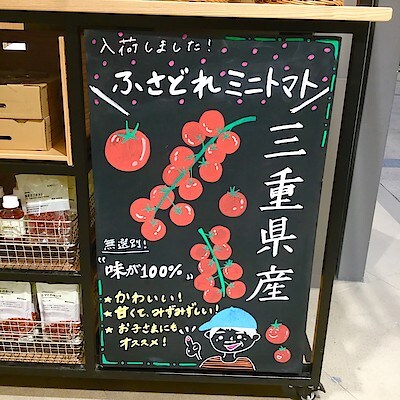 入荷しました!
ふさどれミニトマト
三重県産
無選別!
"味が100%"
★かわいい!
★甘くて、みずみずしい!
★お子さまにも
オススメ!